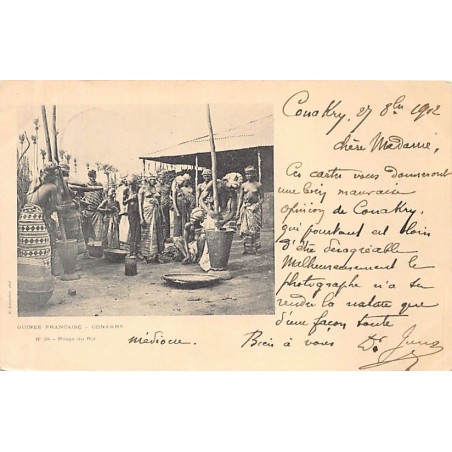 Conakry, 27 8bre 1902
chère Madame,
Ces cartes vous donneront
une bien mauvaise
opinion de Conakry,
qui pourtant est loin
d'être désagréable
Malheureusement le
photographe n'a su
rendre la nature que
d'une façon toute
médiocre. Bien à vous
Dr
GUINÉE FRANÇAISE - CONAKRY
N° 28 - Pilage du Riz